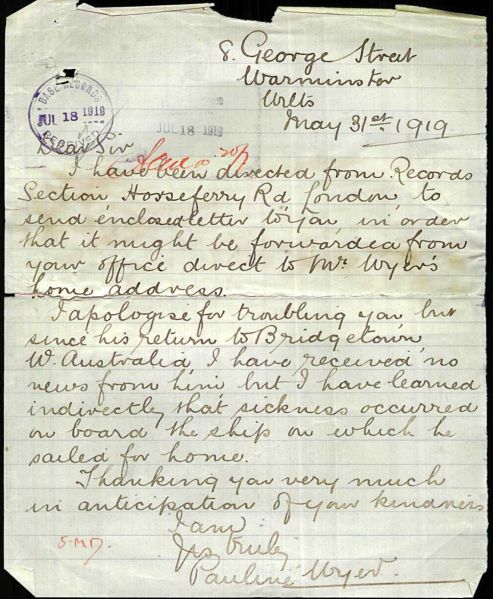 8. George Street
Warminster
Wilts
May 31st. 1919.
BASE RECORDS
JUL 18 1919
RECEIVED
JUL 18 1919
Dear Sir
I have been directed from Records
Section, Horseferry Rd, London, to
send enclosed letter to you, in order
that it might be forwarded from
your office direct to Mr. Wyer's
home address.
I apologise for troubling you but
since his return to Bridgetown,
W. Australia, I have received no
news from him but I have learned
indirectly that sickness occurred
on board the ship on which he
sailed for home.
Thanking you very much
in anticipation of your kindness
I am
Yrs truly
Pauline Wyer.